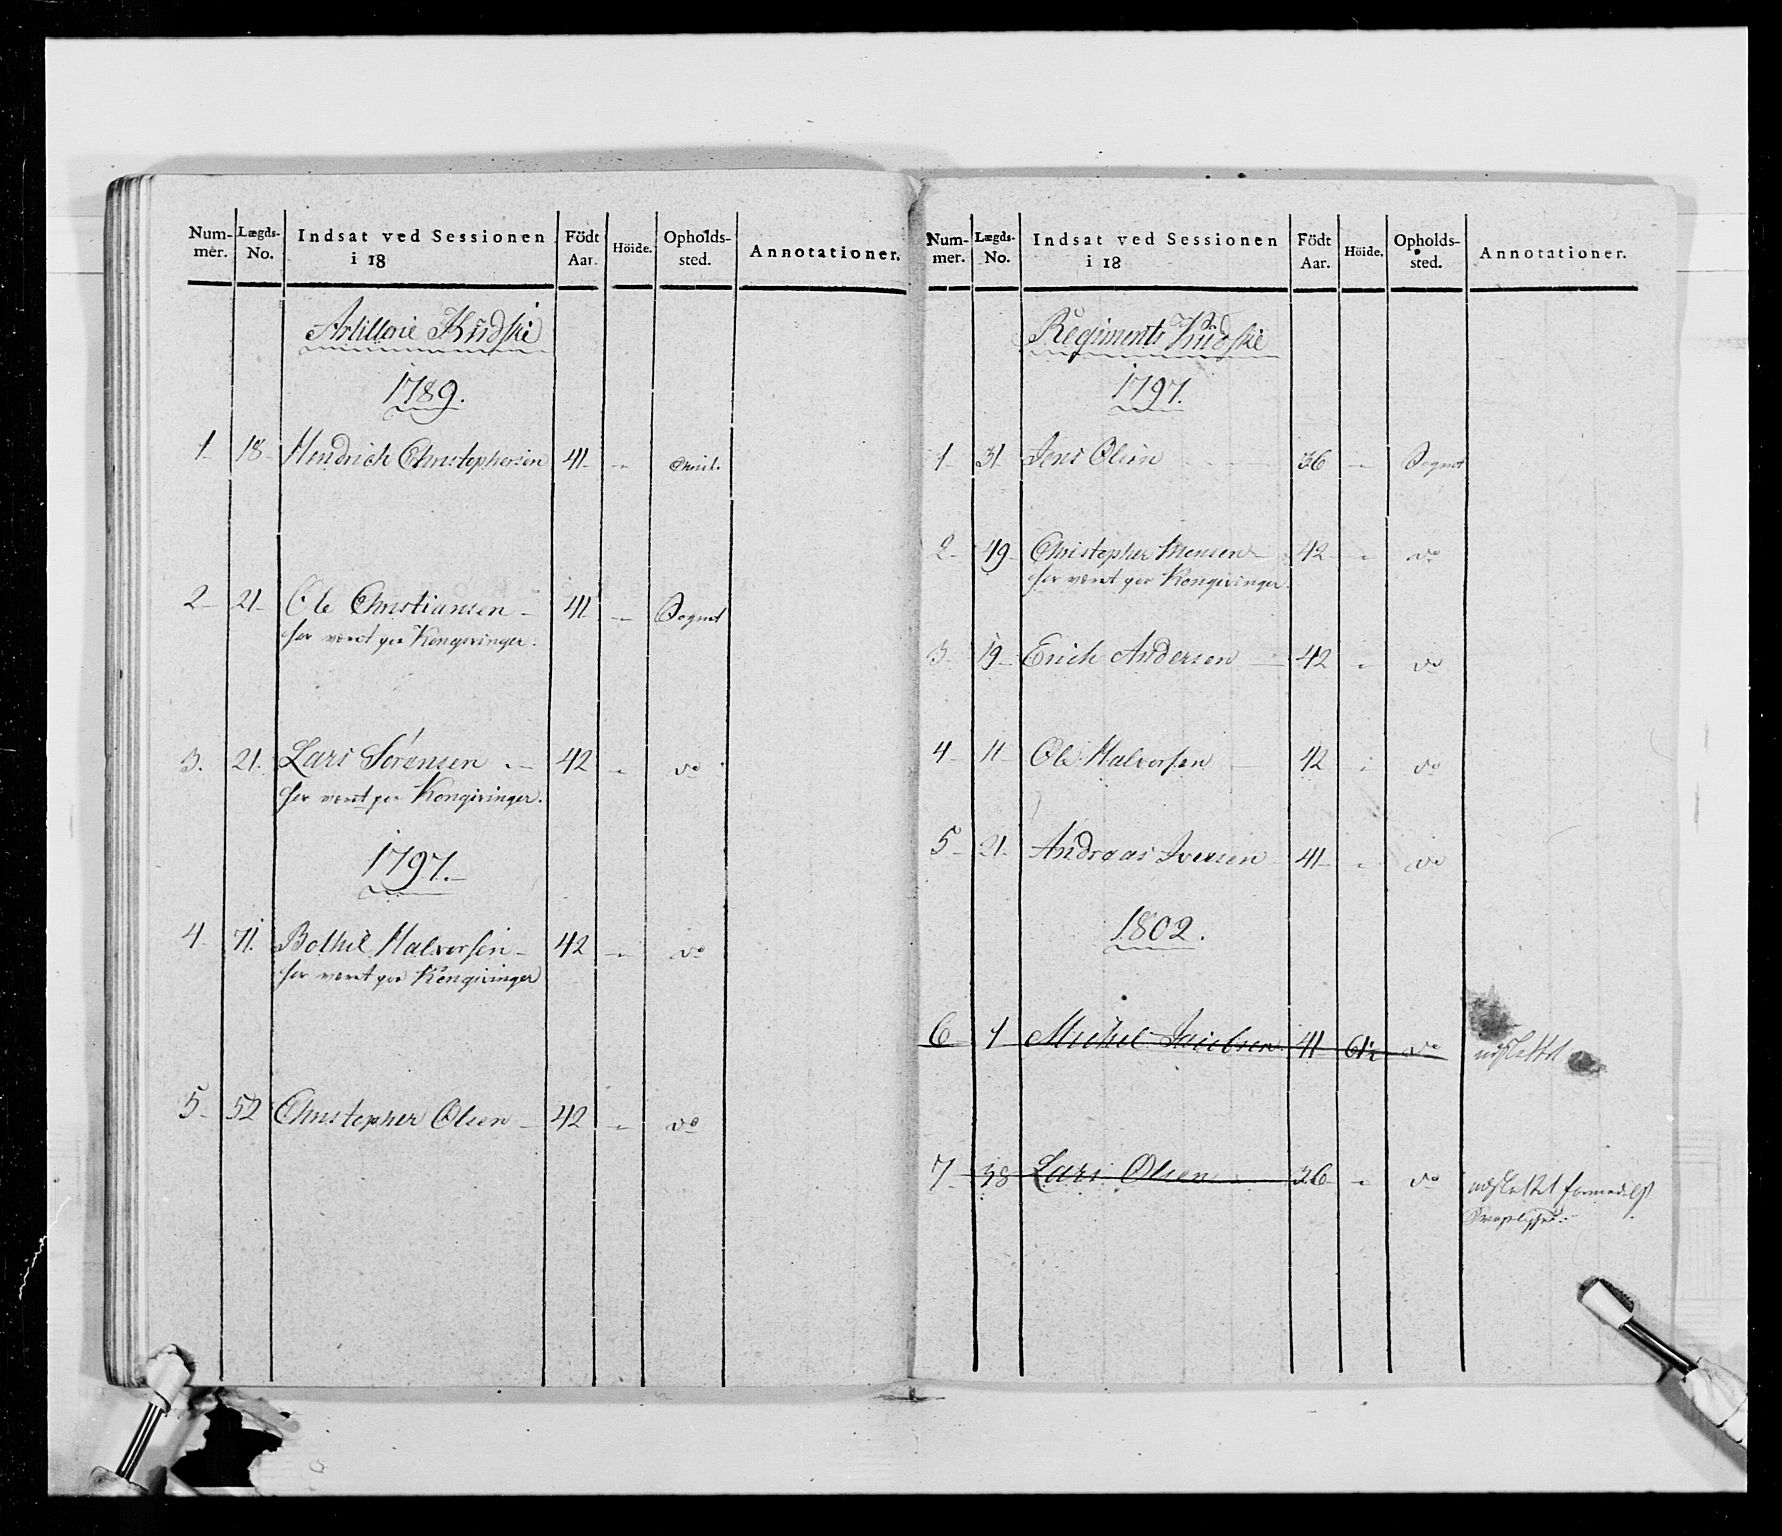 Num-mer. Lægds-No. Indsat ved Sessionen i 18 Födt Aar. Höide. Opholds-sted. Annotationer.
Artillerie Kudske
1789.
1 18 Hendrich Christophersen 41 Christ.
2 21 Ole Christiansen 41 Sognet
har været paa Kongsvinger.
3. 21. Lars Sørensen 42 do
har været paa Kongsvinger.
1797.
4 71. Bothel Halvorsen 42 do
har været paa Kongsvinger
5 52 Christopher Olsen 42 do
Num-mer. Lægds-No. Indsat ved Sessionen i 18 Födt Aar. Höide. Opholds-sted. Annotationer.
Regiments Kudske
1797.
1 31 Jens Olsen 36 Sognet
2 49 Christopher Monsen 42 do
har været paa Kongsvinger.
3 19 Erich Andersen 42 do
4 11 Ole Halvorsen 42 do
5 21 Andreas Iversen 41 do
1802.
6 1 Michel Jacobsen 41 61½ do udslettet
7 38 Lars Olsen 36 do udslettet formedelst